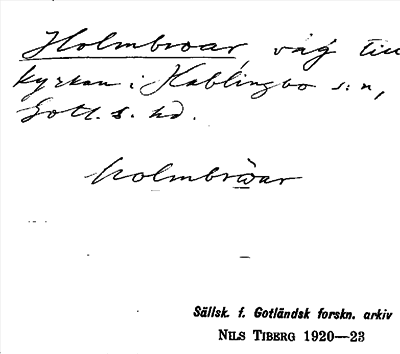 Holmbroar, väg till
kyrkan i Hablingbo s:n,
Gotl. s. hd.
holmbrωar
Sällsk. f. Gotländsk forskn. arkiv
NILS TIBERG 1920—23